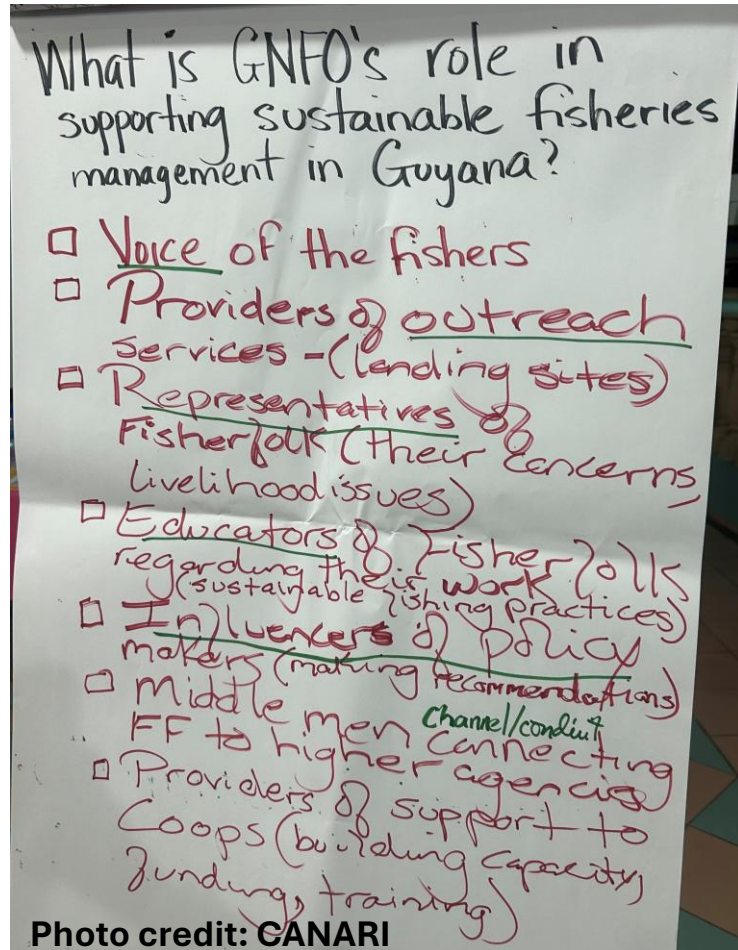 What is GNFO's role in
supporting sustainable fisheries
management in Guyana?
Voice of the fishers
Providers of outreach
services - (landing sites)
Representatives of
Fisherfolk (their concerns,
livelihood issues)
Educators of Fisherfolk
regarding their work
(sustainable fishing practices)
Influencers of policy
makers (making recommendations)
Middle men connecting
channel/conduit
FF to higher agencies
Providers of support to
Coops (building capacity,
funding, training)
Photo credit: CANARI